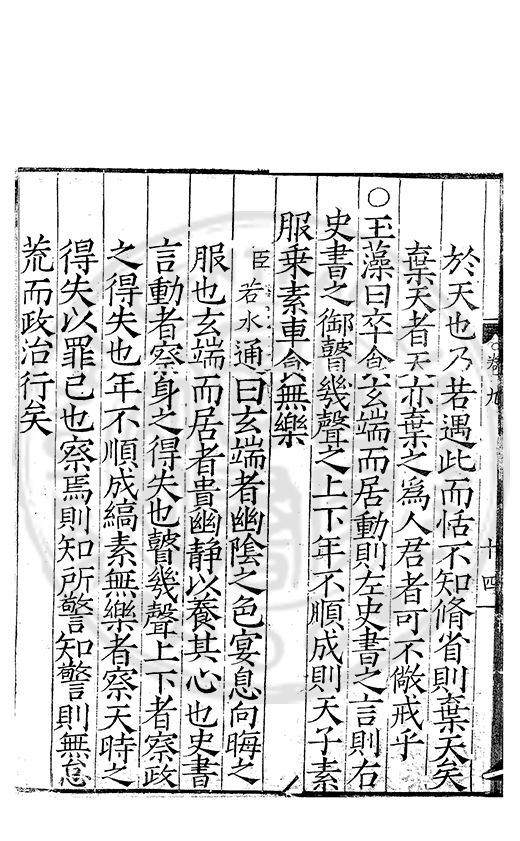 於天也乃若遇此而恬不知脩省則棄天矣
棄天者天亦棄之爲人君者可不儆戒乎
○玉藻曰卒食玄端而居動則左史書之言則右
史書之御瞽幾聲之上下年不順成則天子素
服乗素車食無樂
臣若水通曰玄端者幽陰之色宴息向晦之
服也玄端而居者貴幽静以養其心也史書
言動者察身之得失也瞽幾聲上下者察政
之得失也年不順成縞素無樂者察天時之
得失以罪已也察焉則知所警知警則無怠
荒而政治行矣
卷九
十四